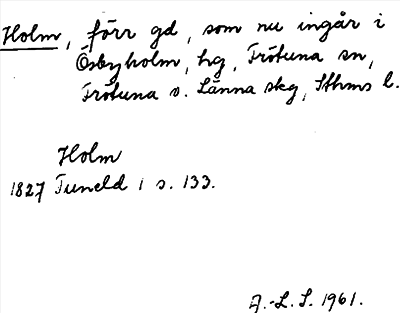 Holm, förr gd, som nu ingår i
Ösbyholm, hg, Frötuna sn,
Frötuna o. Länna skg, Sthms l.
Holm
1827 Tuneld 1 s. 133.
A.-L. S. 1961.